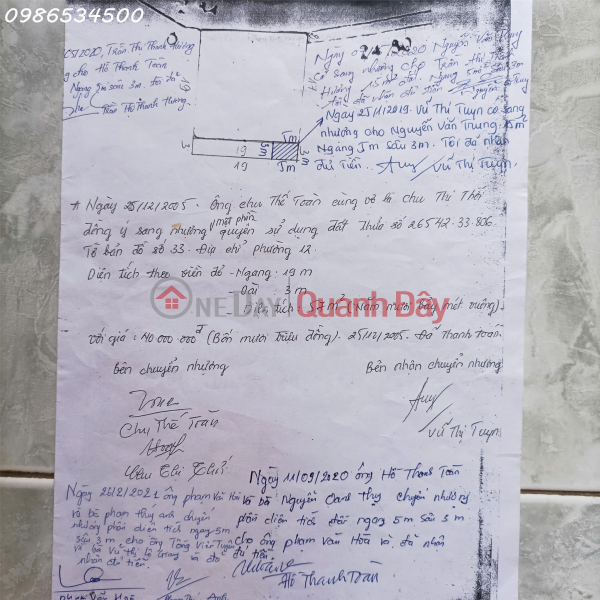 0986534500
05/2020, Trần Thị Thanh Hương
cho Hồ Thanh Toàn
Ngang 5m sâu 3m. tôi đã
Trần Thị Thanh Hương
19
Ngày 2020 Nguyễn Văn Trung
Có sang nhượng cho Trần Thị Thanh
Hương 15m² đất. Ngang 5m sâu 3m
Tôi đã nhận đủ tiền
Ngày 25/11/2019. Vũ Thị Tuyn có sang
nhương cho Nguyễn Văn Trung. 15m²
Ngang 5m sâu 3m. Tôi đã nhận
đủ Tiền. Vũ Thị Tuyn.
3
19
5m
3m
5m
3m
19
5m
* Ngày 25/12/2005. Ông chu Thế Toàn cùng vợ là Chu Thị Thơi
đồng ý sang nhượng một phần quyền sử dụng đất thửa số 26542.33.806.
Tờ bản đồ số 33. Địa chỉ phường 12.
Diện tích theo viền đỏ - Ngang: 19 m
- Dài : 3m
Diện tích : 57 m² (Năm mươi bảy mét vuông)
ONEDAY Quanh Đây
với giá : 40.000.000đ (Bốn mươi triệu đồng). 25/12/2005. Đã Thanh toán.
Bên chuyển nhượng
Bên nhận chuyển nhượng
Chu Thế Toàn
Vũ Thị Tuyn
Ngày 11/09/2020 ông Hồ Thanh Toàn
và bà Nguyễn Oanh Thụy chuyển nhượng
phần diện tích đất ngang 5m sâu 3m
cho ông phạm Văn Hòa và đã nhận
đủ tiền
Hồ Thanh Toàn
Ngày 26/2/2021 ông phạm Văn Hòa
và bà phạm thùy anh chuyển
nhượng phần diện tích ngang 5m
sâu 3m cho ông Tống Viết Tuyên
và bà Vũ thị lệ trang và đã
nhận đủ tiền.